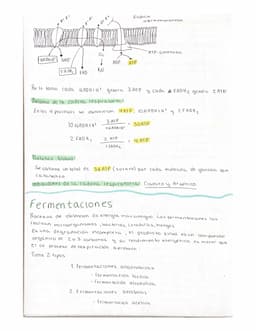 H⁺ H⁺ H⁺
Espacio
intermembrana
NADH+H⁺ NAD⁺
FADH₂ FAD
ADP ATP
ATP-sintetasa
cada NADH+H⁺ genera 3 ATP y cada FADH₂ genera 2 ATP
Balance de la cadena respiratoria:
se obtienen 34 ATP 10 NADH+H⁺ y 2 FADH₂
10 NADH+H⁺ · 3 ATP / 1 NADH+H⁺ = 30 ATP
2 FADH₂ · 2 ATP / 1 FADH₂ = 4 ATP
Balance global:
Se obtiene un total de 38 ATP por cada molécula de glucosa que
de la cadena respiratoria: Cianuro y
Fermentaciones
Proceso de obtención de energía Las fermentaciones las
realizan microorganismos, bacterias, levaduras, hongos.
Es una degradación incompleta, el producto final es un compuesto
orgánico de 2 o 3 carbonos y su rendimiento energético es menor que
el de proceso de respiración
2 tipos
1. Fermentaciones anaerobias
- fermentación láctica
- fermentación alcohólica
2. Fermentaciones aerobias
- fermentación acética